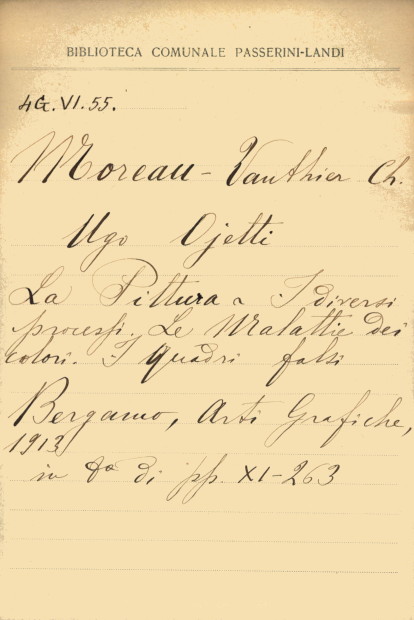 BIBLIOTECA COMUNALE PASSERINI-LANDI
4G.VI.55.
Moreau - Vauthier Ch.
Ugo Ojetti
La Pittura - I diversi
processi. Le Malattie dei
colori. I quadri falsi
Bergamo, Arti Grafiche,
1913
in 8° di pp. XI-263